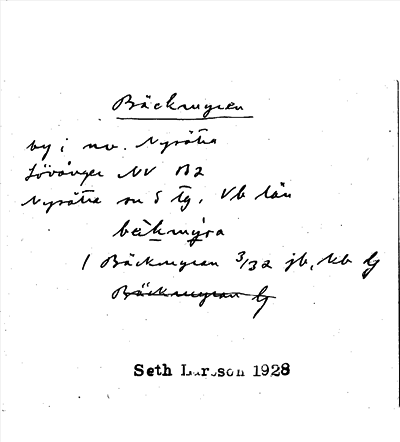 Bäckmyran
by i nv. Nysätra
Lövånger NV B2
Nysätra sn S Tg, Vb län
bäkmyra
1 Bäckmyran 3/32 jb, kb lg
Bäckmyran lg
Seth Larsson 1928